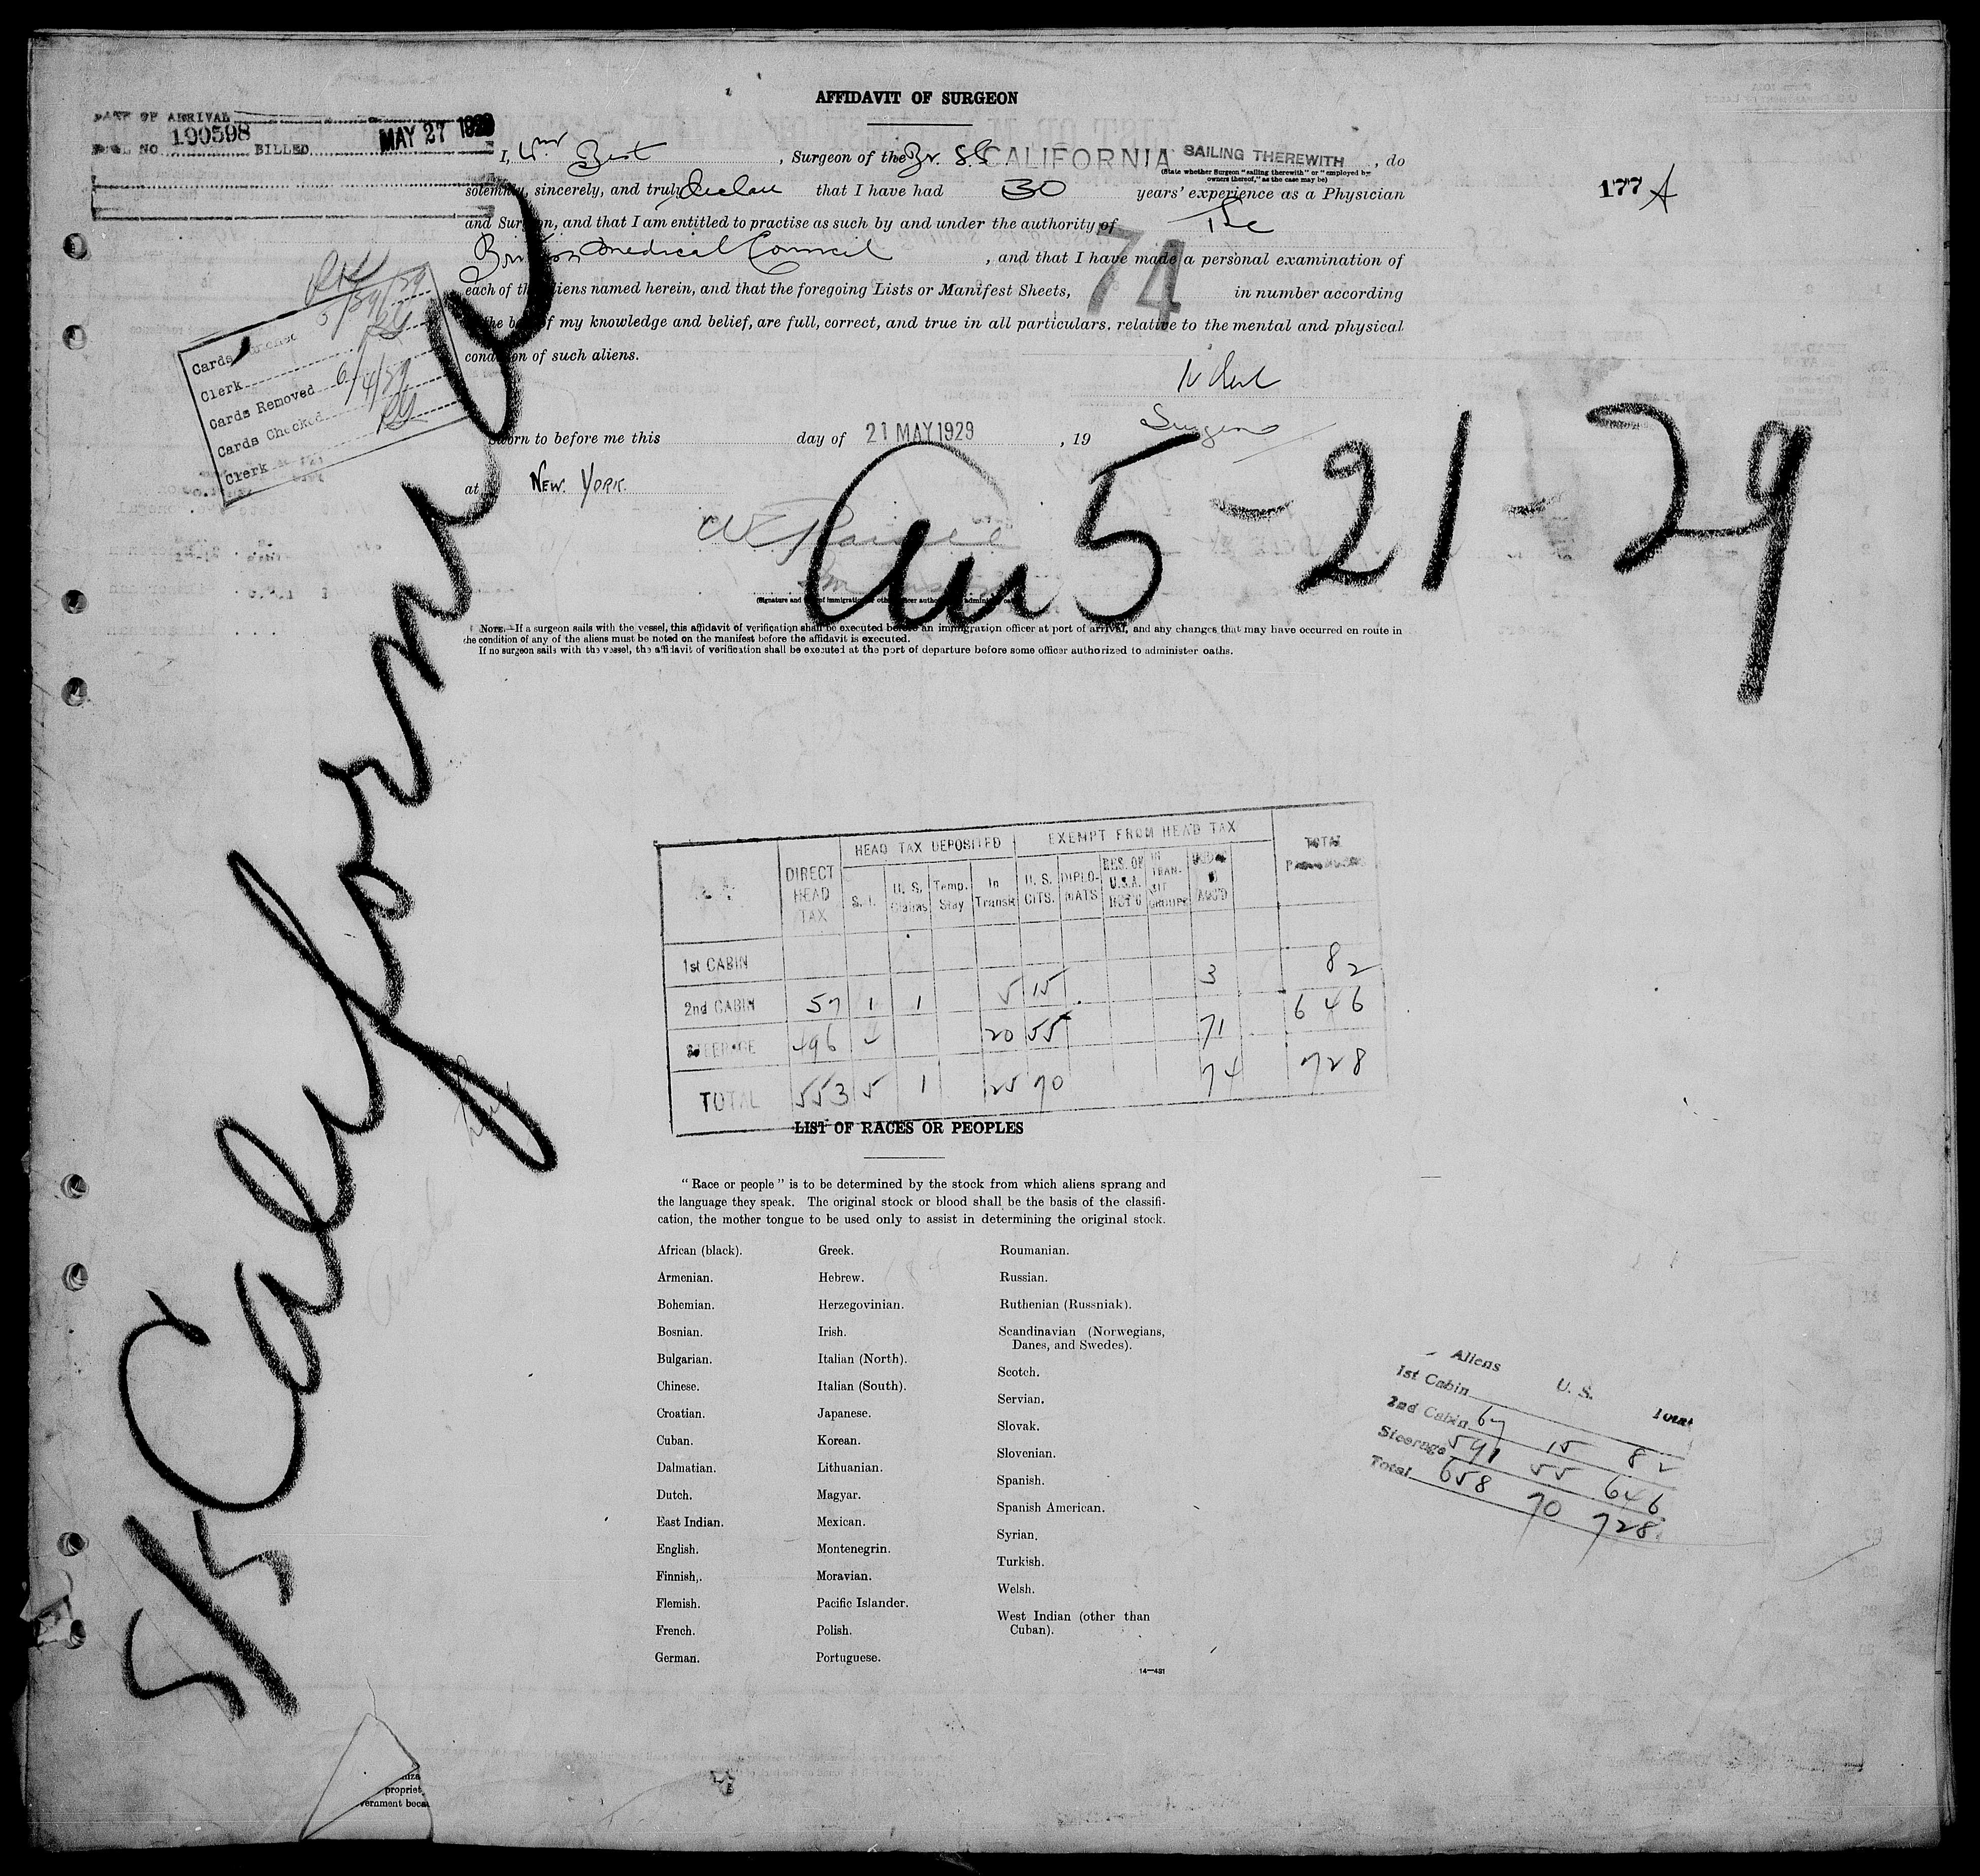 AFFIDAVIT OF SURGEON
DATE OF ARRIVAL
NO 190598 BILLED MAY 27 1929
I, Wm Best, Surgeon of the Br. SS CALIFORNIA SAILING THEREWITH, do
(State whether Surgeon "sailing therewith" or "employed by owners thereof," as the case may be)
solemnly, sincerely, and truly declare that I have had 30 years' experience as a Physician
177 A
and Surgeon, and that I am entitled to practise as such by and under the authority of The
British Medical Council, and that I have made a personal examination of
each of the aliens named herein, and that the foregoing Lists or Manifest Sheets, 74 in number according
the best of my knowledge and belief, are full, correct, and true in all particulars, relative to the mental and physical
condition of such aliens.
W Best
Surgeon
Cards
Clerk
Cards Removed 6/4/29
Cards Checked
Clerk
5/29/29
Sworn to before me this day of 21 MAY 1929, 19
at NEW. YORK.
(Signature and of immigration or other officer authorized to administer oaths)
Arr 5-21-29
S/S California
NOTE.—If a surgeon sails with the vessel, this affidavit of verification shall be executed before an immigration officer at port of arrival, and any changes that may have occurred en route in
the condition of any of the aliens must be noted on the manifest before the affidavit is executed.
If no surgeon sails with the vessel, the affidavit of verification shall be executed at the port of departure before some officer authorized to administer oaths.
DIRECT HEAD TAX HEAD TAX DEPOSITED EXEMPT FROM HEAD TAX TOTAL
S. I. U. S. Claims Temp. Stay In Transit U. S. CITS. DIPLO-MATS RES. OF U.S.A. IN TRAN-SIT GROUPS
1st CABIN
2nd CABIN 57 1 1 5 15 3 82
STEERAGE 496 4 20 55 71 646
TOTAL 553 5 1 25 70 74 728
LIST OF RACES OR PEOPLES
"Race or people" is to be determined by the stock from which aliens sprang and
the language they speak. The original stock or blood shall be the basis of the classifi-
cation, the mother tongue to be used only to assist in determining the original stock.
African (black).
Armenian.
Bohemian.
Bosnian.
Bulgarian.
Chinese.
Croatian.
Cuban.
Dalmatian.
Dutch.
East Indian.
English.
Finnish,.
Flemish.
French.
German.
Greek.
Hebrew.
Herzegovinian.
Irish.
Italian (North).
Italian (South).
Japanese.
Korean.
Lithuanian.
Magyar.
Mexican.
Montenegrin.
Moravian.
Pacific Islander.
Polish.
Portuguese.
Roumanian.
Russian.
Ruthenian (Russniak).
Scandinavian (Norwegians,
Danes, and Swedes).
Scotch.
Servian.
Slovak.
Slovenian.
Spanish.
Spanish American.
Syrian.
Turkish.
Welsh.
West Indian (other than
Cuban).
14—431
Aliens U. S. Total
1st Cabin
2nd Cabin 67 15 82
Steerage 591 55 646
Total 658 70 728
propriet
vernment beca